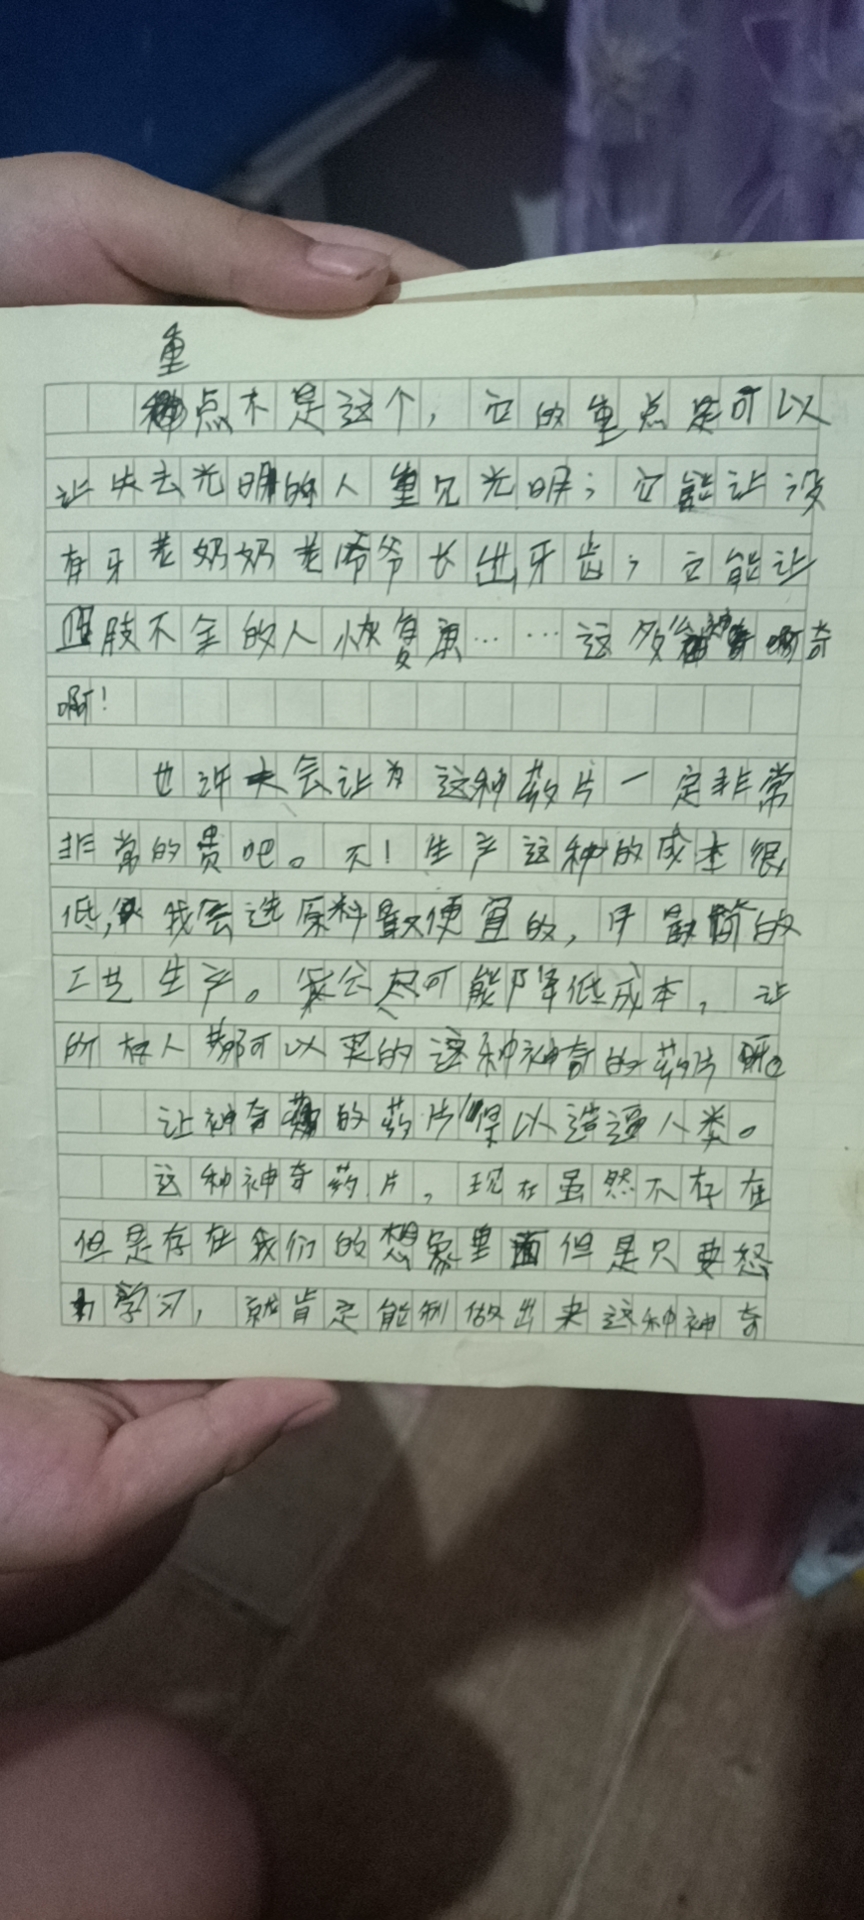 重
点不是这个，它的重点是可以
让失去光明的人重见光明；它能让没
有牙老奶奶老爷爷长出牙齿；它能让
四肢不全的人恢复原……这多么神奇
啊！
也许大会认为这种药片一定非常
非常的贵吧。不！生产这种的成本很
低，我会选原料最便宜的，用最简的
工艺生产。我会尽可能降低成本，让
所有人都可以买的这种神奇的药片呢。
让神奇的药片得以造福人类。
这种神奇药片，现在虽然不存在
但是存在我们的想象里面但是只要努
力学习，就肯定能制做出来这种神奇